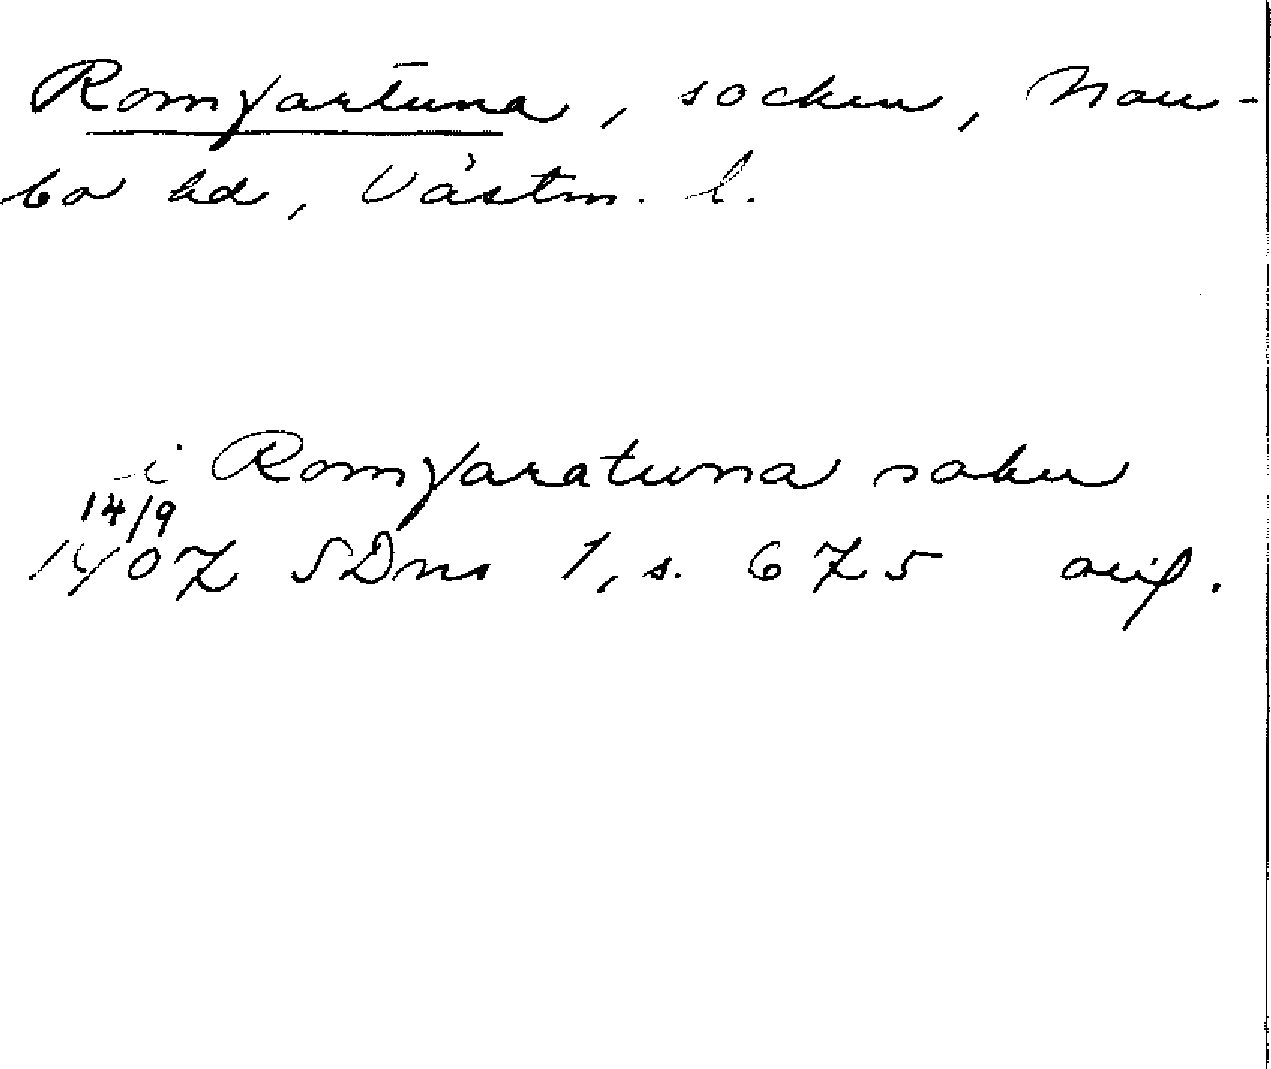 Romfartuna, socken, Norr-
bo hd, Västm. l.
i Romfaratuna sokn
14/9
1407 SDns 1, s. 675 avif.